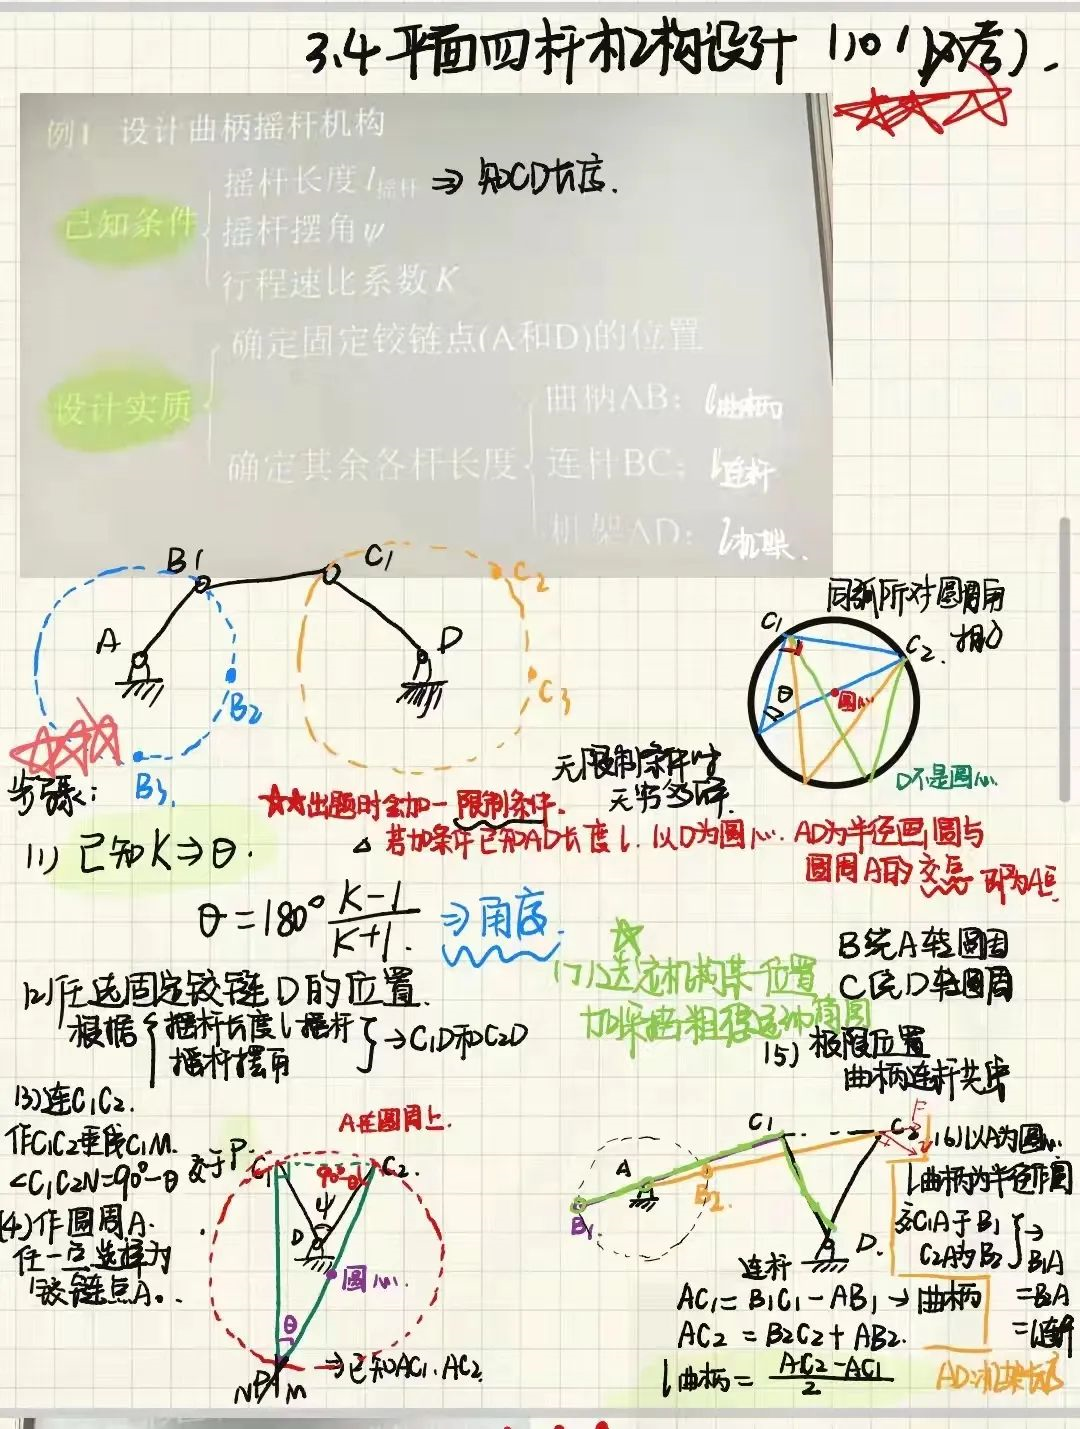 3.4 平面四杆机构设计 (10') (必考).
例1 设计曲柄摇杆机构
已知条件
摇杆长度 l摇杆 ⇒ 知CD长度.
摇杆摆角ψ
行程速比系数K
设计实质
确定固定铰链点(A和D)的位置
确定其余各杆长度
曲柄AB: l曲柄
连杆BC: l连杆
机架AD: l机架.
B1
C1
C2
A
D
B2
C3
B3.
同弧所对圆周角
相心
C1
C2.
θ
圆心
D不是圆心.
步骤:
无限制条件时
无穷多解.
★★出题时会加一限制条件.
△ 若加条件已知AD长度l. 以D为圆心. AD为半径画圆与
圆周A的交点 即为A点
(1) 已知K⇒θ.
θ=180° K-1/K+1. ⇒角度.
B绕A转圆周
C绕D转圆周
(7)选定机构某一位置
加深描粗得运动简图
(2)任选固定铰链D的位置.
根据{摇杆长度l摇杆
摇杆摆角}→C1D和C2D
(5) 极限位置
曲柄连杆共线
(3)连C1C2.
作C1C2垂线C1M.
<C1C2N=90°-θ 交于P.
(4)作圆周A.
任一点选择为
铰链点A.
A在圆周上.
C1
C2
90°-θ
ψ
D
圆心.
θ
N P M
⇒已知AC1, AC2.
C1
C2
F
A
B1
B2
D.
(6)以A为圆心
l曲柄为半径作圆
交C1A于B1
C2A为B2
→B1A
=B2A
连杆
AC1=B1C1-AB1→曲柄
AC2=B2C2+AB2.
l曲柄=AC2-AC1/2
AD:机架长度